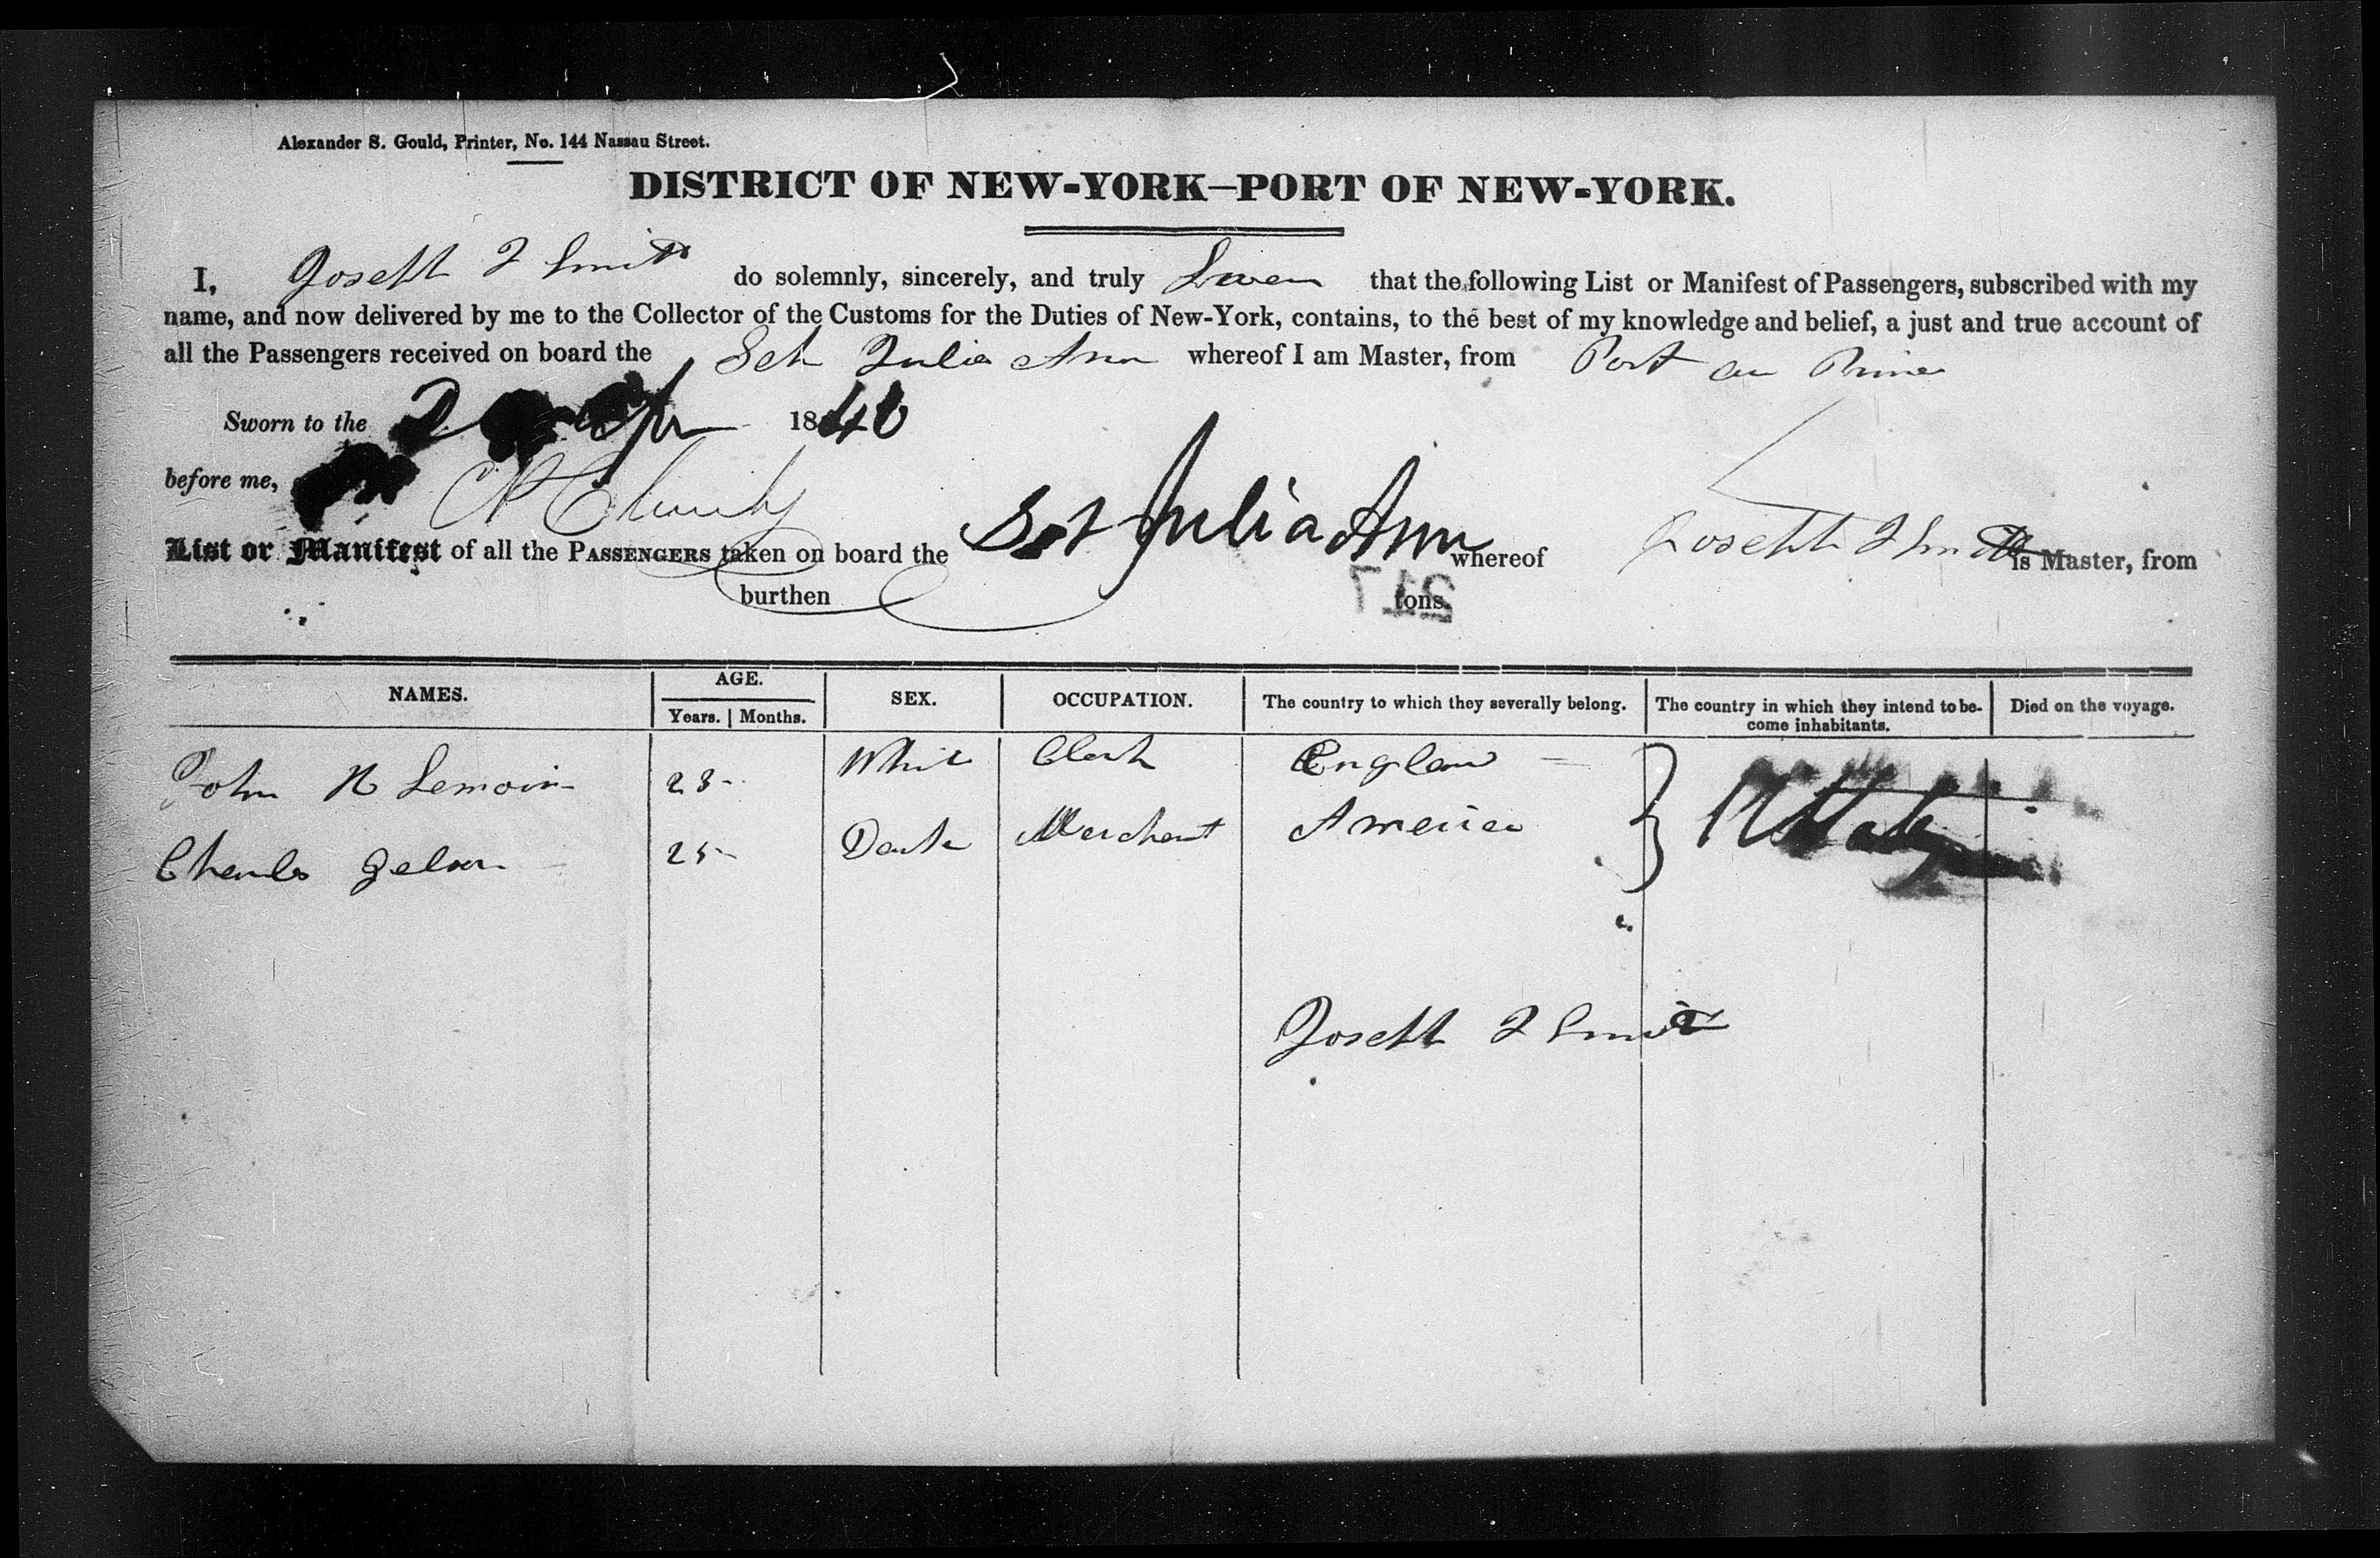 Alexander S. Gould, Printer, No. 144 Nassau Street.
DISTRICT OF NEW-YORK—PORT OF NEW-YORK.
I, Joseph I Smith do solemnly, sincerely, and truly Swear that the following List or Manifest of Passengers, subscribed with my
name, and now delivered by me to the Collector of the Customs for the Duties of New-York, contains, to the best of my knowledge and belief, a just and true account of
all the Passengers received on board the Sch Julia Ann whereof I am Master, from Port au Prince
Sworn to the 1840
before me,
List or Manifest of all the PASSENGERS taken on board the Sch Julia Ann whereof Joseph I Smith is Master, from
burthen tons.
217
NAMES. AGE. SEX. OCCUPATION. The country to which they severally belong. The country in which they intend to be- Died on the voyage.
Years. Months. come inhabitants.
John H Lemoin 23 White Clerk England
Charles 25 Dark Merchant America
Joseph I Smith